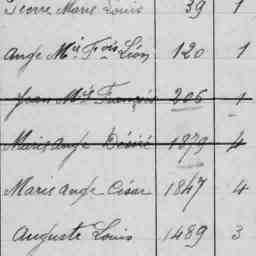 Pierre Marie Louis 39 1
Ange Mie Fois Léon 120 1
Jean Mie François 206 1
Marie Ange Désiré 1879 4
Marie Ange César 1847 4
Auguste Louis 1489 3